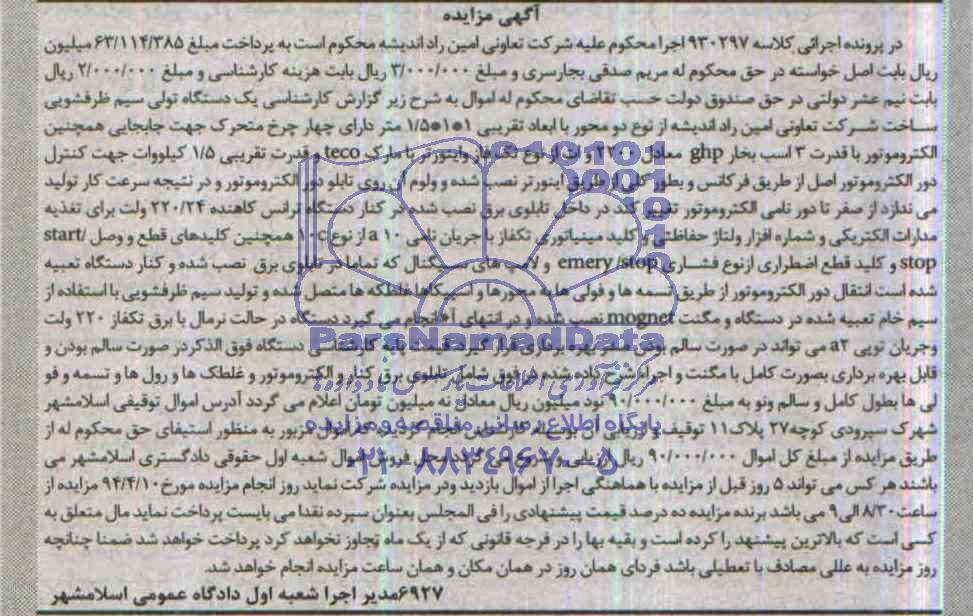 آگهی مزایده
در پرونده اجرائی کلاسه ۹۳۰۲۹۷ اجرا محکوم علیه شرکت تعاونی امین راد اندیشه محکوم است به پرداخت مبلغ ۶۳/۱۱۴/۳۸۵ میلیون
ریال بابت اصل خواسته در حق محکوم له مریم صدقی بجارسری و مبلغ ۳/۰۰۰/۰۰۰ ریال بابت هزینه کارشناسی و مبلغ ۲/۰۰۰/۰۰۰ ریال
بابت نیم عشر دولتی در حق صندوق دولت حسب تقاضای محکوم له اموال به شرح زیر گزارش کارشناسی یک دستگاه تولی سیم ظرفشویی
ساخت شرکت تعاونی امین راد اندیشه از نوع دو محور با ابعاد تقریبی ۱*۱*۱/۵ متر دارای چهار چرخ متحرک جهت جابجایی همچنین
الکتروموتور با قدرت ۳ اسب بخار ghp معادل ۲۲۰۰ وات از نوع تک فاز واینورتر با مارک teco و قدرت تقریبی ۱/۵ کیلووات جهت کنترل
دور الکتروموتور اصل از طریق فرکانس و بطور کلی از طریق اینورتر نصب شده و ولوم آن روی تابلو دور الکتروموتور و در نتیجه سرعت کار تولید
می ندازد از صفر تا دور نامی الکتروموتور تغییر کند در داخل تابلوی برق نصب شده در کنار دستگاه ترانس کاهنده ۲۲۰/۲۴ ولت برای تغذیه
مدارات الکتریکی و شماره افزار ولتاژ حفاظتی و کلید مینیاتوری تکفاز با جریان نامی ۱۰ a از نوع ۱۰c همچنین کلیدهای قطع و وصل start/
stop و کلید قطع اضطراری ازنوع فشاری emery /stop و لامپ های سیگنال که تماما در تابلوی برق نصب شده و کنار دستگاه تعبیه
شده است انتقال دور الکتروموتور از طریق تسمه ها و فولی ها به محورها و اسپیکاها غلطکه ها متصل شده و تولید سیم ظرفشویی با استفاده از
سیم خام تعبیه شده در دستگاه و مگنت mognet نصب شده و در انتهای آ انجام می گیرد دستگاه در حالت نرمال با برق تکفاز ۲۲۰ ولت
وجریان توپی a۲ می تواند در صورت سالم بودن مورد بهره برداری قرار گیرد قیمت پایه کارشناسی دستگاه فوق الذکر در صورت سالم بودن و
قابل بهره برداری بصورت کامل با مگنت و اجزاء شرح داده شده در فوق شامل تابلوی برق کنار و الکتروموتور و غلطک ها و رول ها و تسمه و فو
لی ها بطول کامل و سالم ونو به مبلغ ۹۰/۰۰۰/۰۰۰ نود میلیون ریال معادل نه میلیون تومان اعلام می گردد آدرس اموال توقیفی اسلامشهر
شهرک سپرودی کوچه۲۷ پلاک۱۱ توقیف و ارزیابی آن بوسیله کارشناس انجام گردیده که اموال مزبور به منظور استیفای حق محکوم له از
طریق مزایده از مبلغ کل اموال ۹۰/۰۰۰/۰۰۰ ریال ارزیابی و شروع می گردد محل فروش اموال شعبه اول حقوقی دادگستری اسلامشهر می
باشند هر کس می تواند ۵ روز قبل از مزایده با هماهنگی اجرا از اموال بازدید ودر مزایده شرکت نماید روز انجام مزایده مورخ ۹۴/۴/۱۰ مزایده از
ساعت ۸/۳۰ الی ۹ می باشد برنده مزایده ده درصد قیمت پیشنهادی را فی المجلس بعنوان سپرده نقدا می بایست پرداخت نماید مال متعلق به
کسی است که بالاترین پیشنهد را کرده است و بقیه بها را در فرجه قانونی که از یک ماه تجاوز نخواهد کرد پرداخت خواهد شد ضمنا چنانچه
روز مزایده به عللی مصادف با تعطیلی باشد فردای همان روز در همان مکان و همان ساعت مزایده انجام خواهد شد.
۶۹۲۷مدیر اجرا شعبه اول دادگاه عمومی اسلامشهر
ParsNamadData
پایگاه اطلاع رسانی مناقصه و مزایده
۰۲۱-۸۸۳۴۹۶۷۰-۵